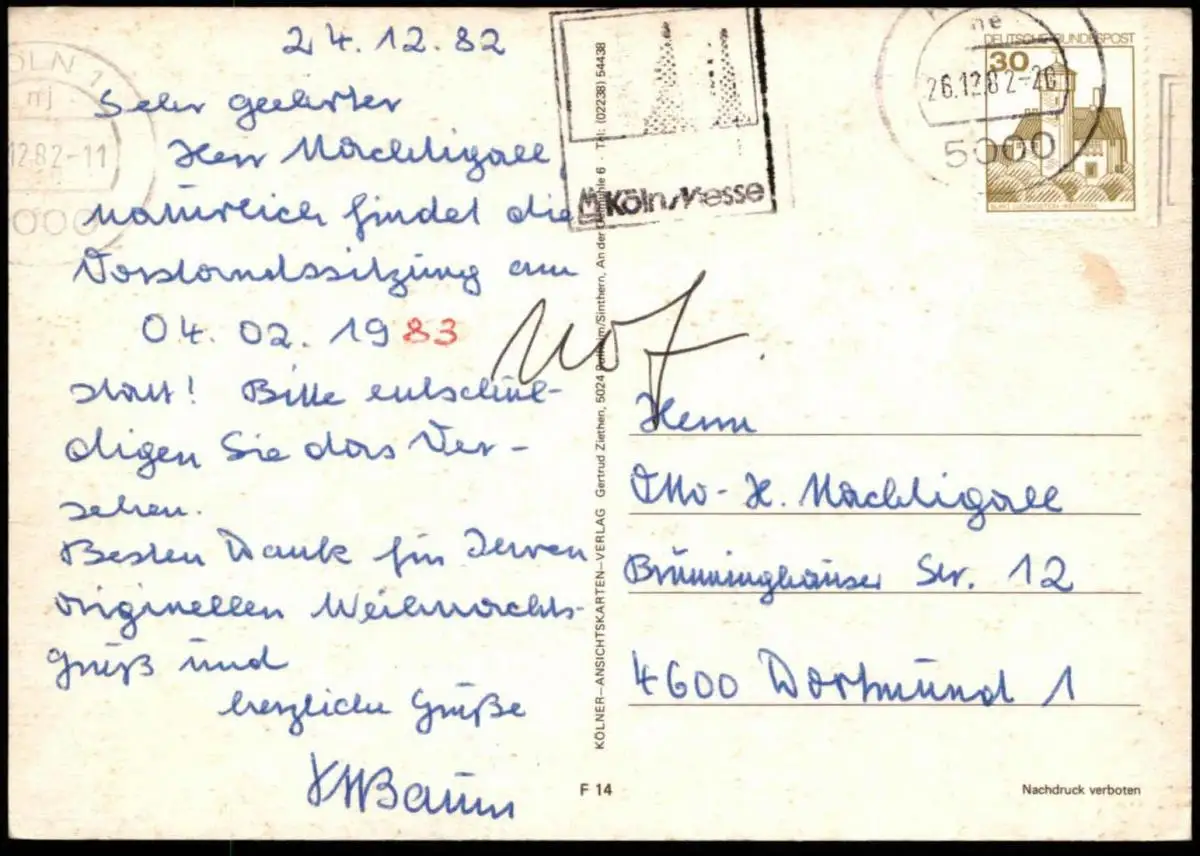 24.12.82
Sehr geehrter
Herr Nachtigall
natürlich findet die
Vorstandssitzung am
04.02.1983
statt! Bitte entschul-
digen Sie das Ver-
sehen.
Besten Dank für Ihren
originellen Weihnachts-
gruß und
herzliche Grüße
Baum
Köln Messe
DEUTSCHE BUNDESPOST
30
26.12.82-20
5000
ÖLN 1
mj
12.82-11
000
KÖLNER-ANSICHTSKARTEN-VERLAG Gertrud Ziethen, 5024 Pulheim/Sinthern, An der 6 · Tel: (02238) 54438
Herrn
Otto-H. Nachtigall
Brünninghauser Str. 12
4600 Dortmund 1
F 14
Nachdruck verboten